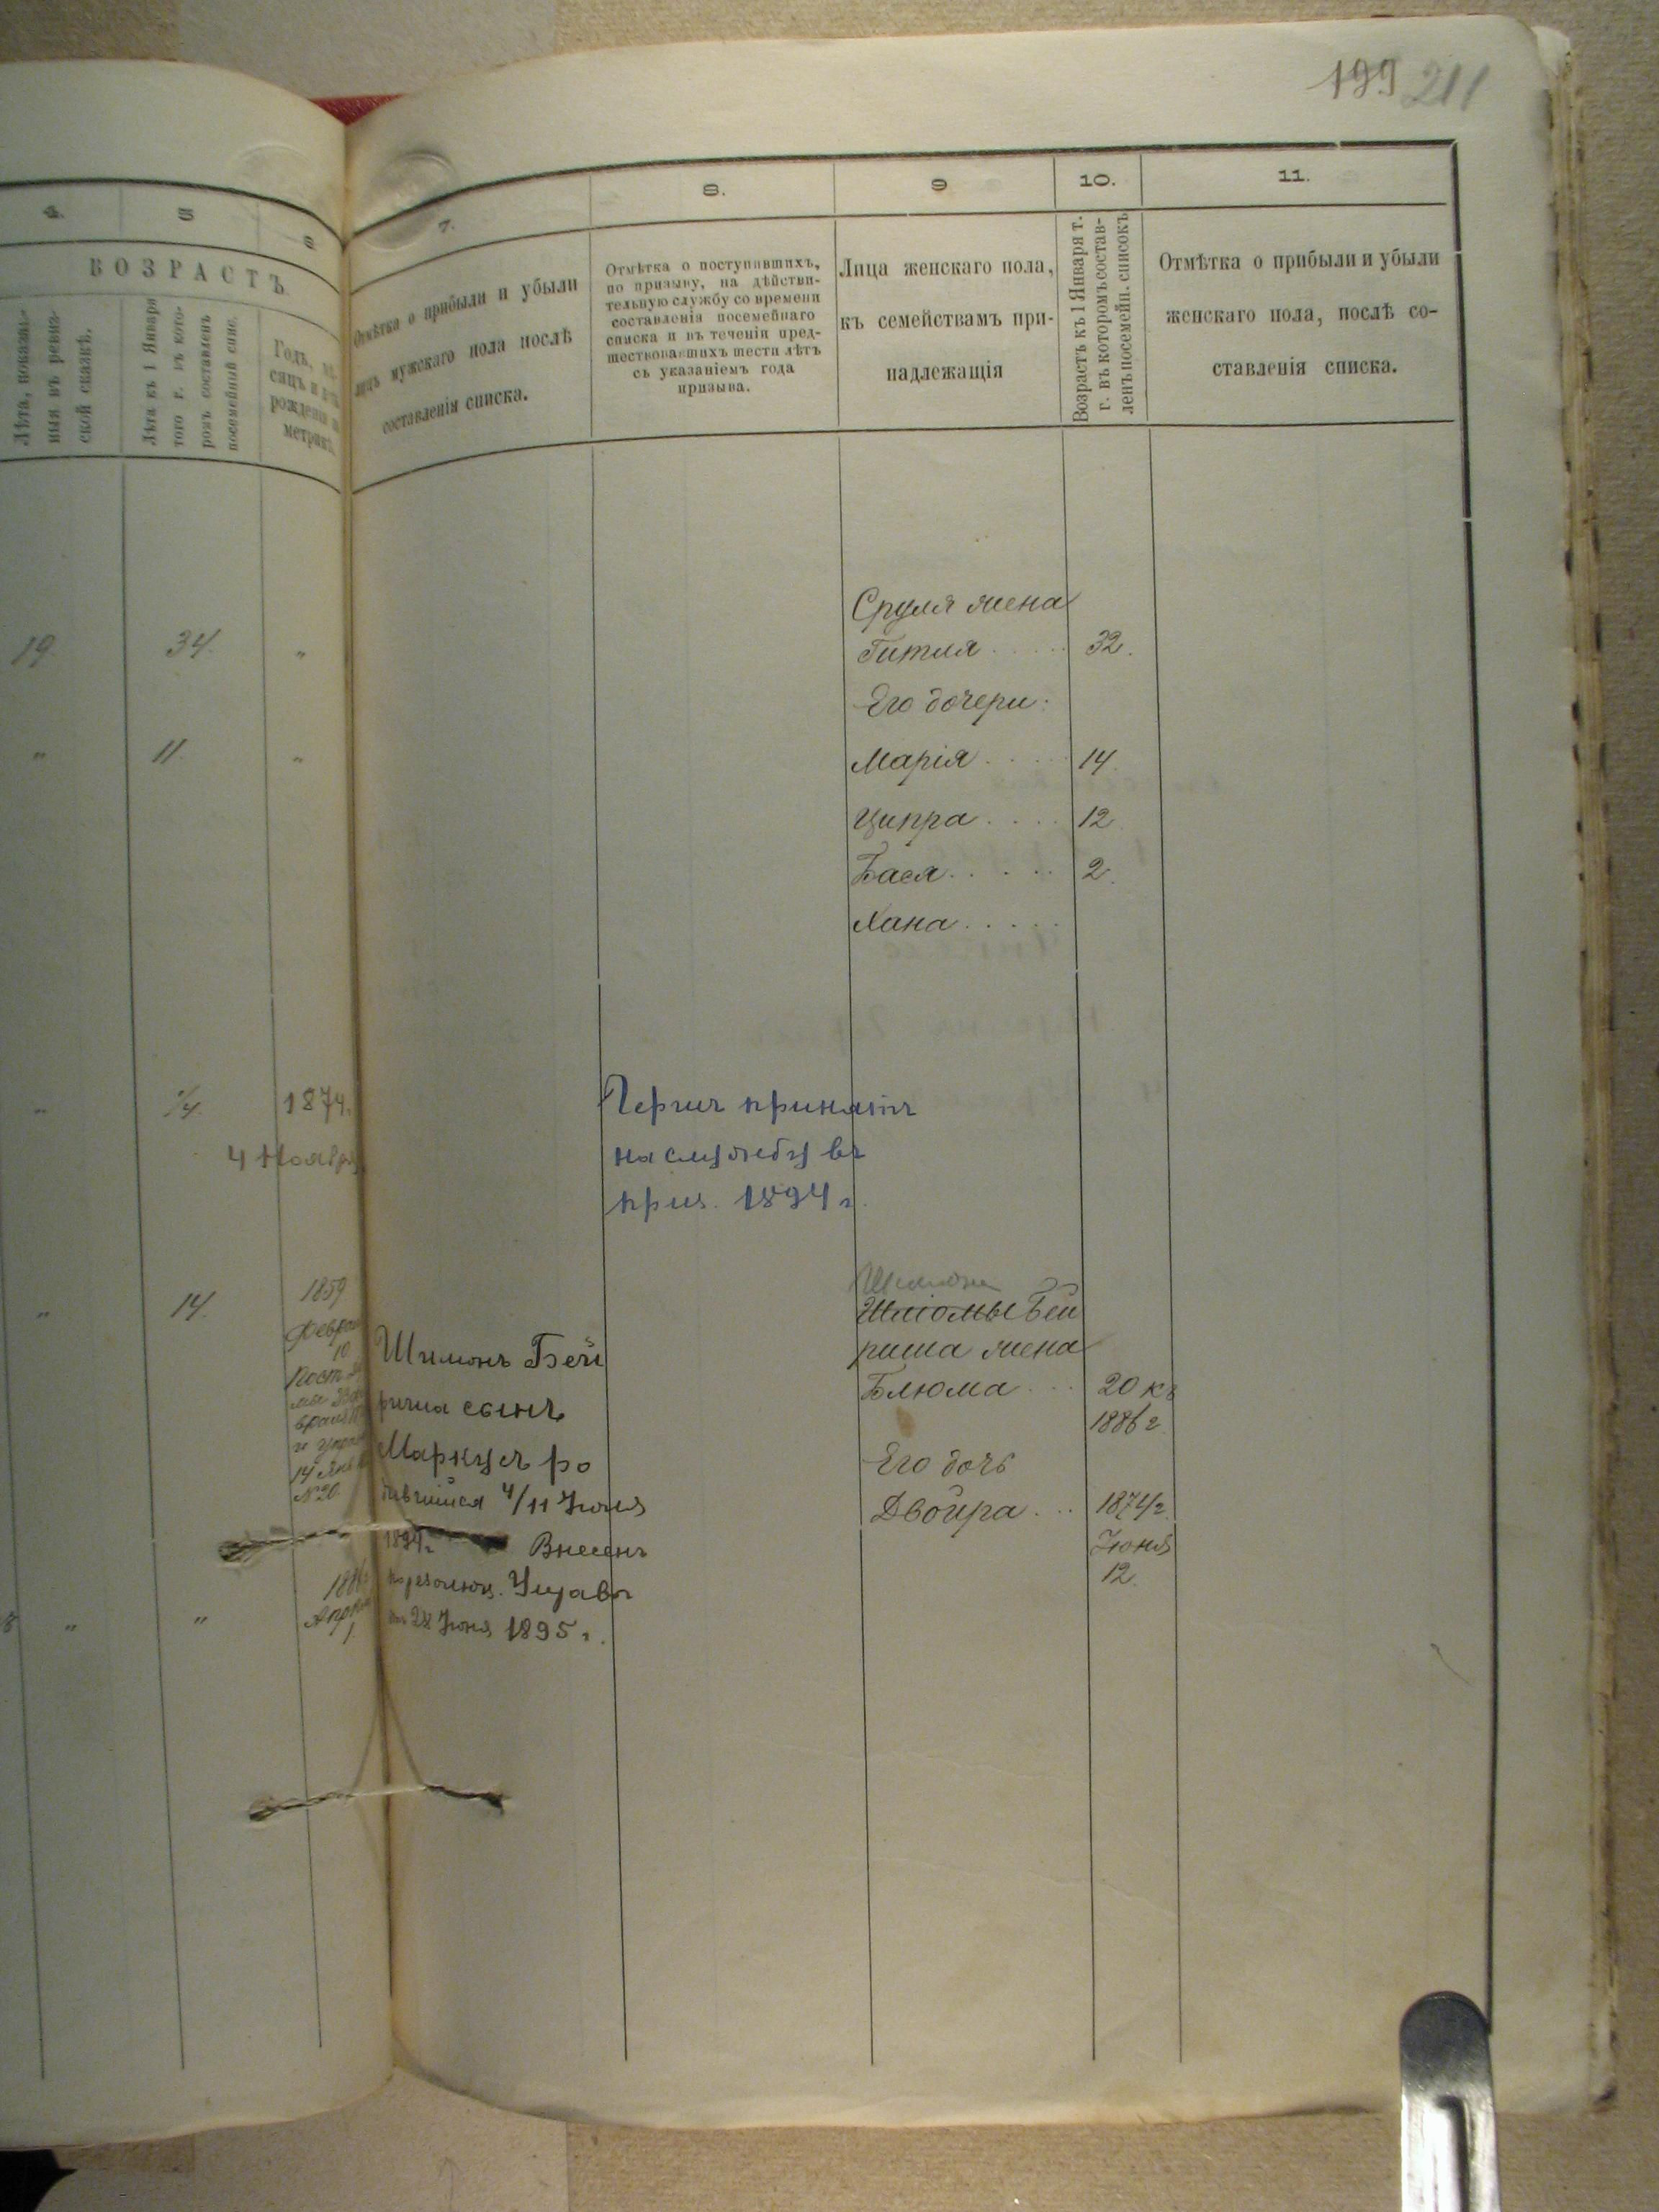 199 211
4. 5 6
ВОЗРАСТЪ
Лѣта, показан-
ныя въ ревиз-
ской сказкѣ.
Лѣта къ 1 Января
того г. въ кото-
ромъ составленъ
посемейный спис.
Годъ, мѣ-
сяцъ и
рожденія
метрик
7. 8. 9 10. 11.
Отмѣтка о прибыли и убыли
лицъ мужскаго пола послѣ
составленія списка.
Отмѣтка о поступившихъ,
по призыву, на дѣйстви-
тельную службу со времени
составленія посемейнаго
списка и въ теченіи пред-
шествовавшихъ шести лѣтъ
съ указаніемъ года
призыва.
Лица женскаго пола,
къ семействамъ при-
надлежащія
Возрастъ къ 1 Января т.
г. въ которомъ состав-
ленъ посемейн. списокъ
Отмѣтка о прибыли и убыли
женскаго пола, послѣ со-
ставленія списка.
Сруля жена
19 34. " Гитля 32.
Его дочери:
" 11. " Марія 14.
Ципра 12.
Бася 2.
Хана
" 1/4. 1874.
4 Ноября
принятъ
на службу въ
приз. 1894 г.
" 14. 1859
Феврал
10
14 Янв
№ 20.
Шимонъ Бей
риша сынъ
Маркусъ ро
дившійся 4/11 Іюня
1894 г. Внесенъ
по резолюц. Управы
28 Іюня 1895 г.
Шимона
Шліомы Бей
риша жена
Блюма 20 къ
1886 г.
Его дочь
Двойра 1874 г.
Іюня
12.
" " 1886
Апрѣля
1.